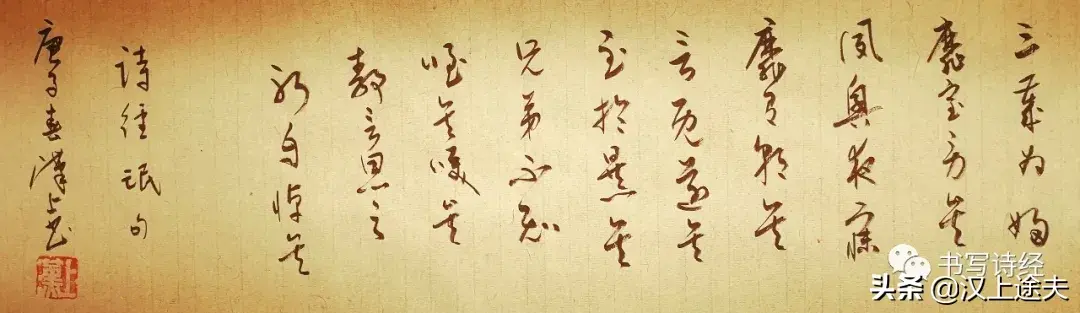 三歲为婦
靡室劳矣
夙興夜寐
靡有朝矣
言既遂矣
至於暴矣
兄弟不知
咥其咲矣
静言思之
躬自悼矣
詩经氓句
庚子春漢上书
书写诗经
头条@汉上途夫